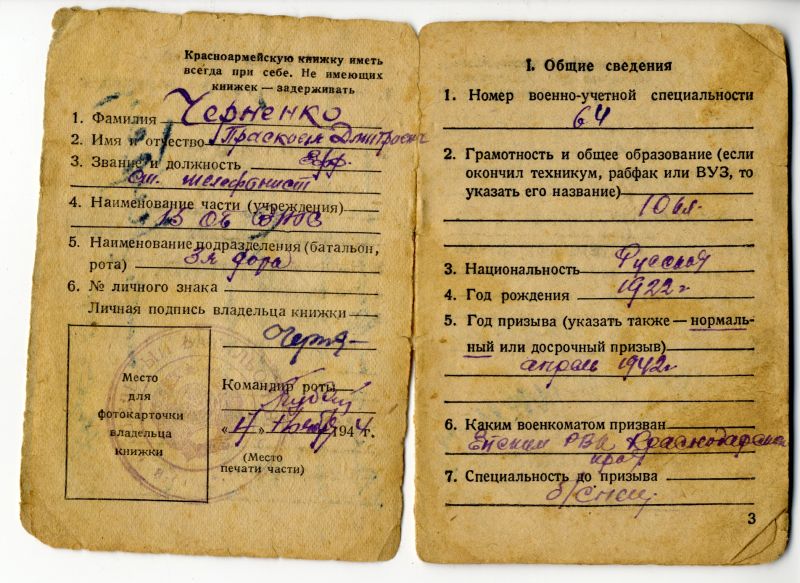 Красноармейскую книжку иметь
всегда при себе. Не имеющих
книжек — задерживать
1. Фамилия Черненко
2. Имя и отчество
3. Звание и должность ефр.
ст. телефонист
4. Наименование части (учреждения)
5. Наименование подразделения (батальон,
рота) 3я
6. № личного знака
Личная подпись владельца книжки
Место
для
фотокарточки
владельца
книжки
Командир роты
194 4 г.
(Место
печати части)
I. Общие сведения
1. Номер военно-учетной специальности
64
2. Грамотность и общее образование (если
окончил техникум, рабфак или ВУЗ, то
указать его название)
10 кл.
3. Национальность Русская
4. Год рождения 1922 г
5. Год призыва (указать также — нормаль-
ный или досрочный призыв)
апрель 1942 г
6. Каким военкоматом призван
РВК Краснодарский
край
7. Специальность до призыва
б/спец.
3